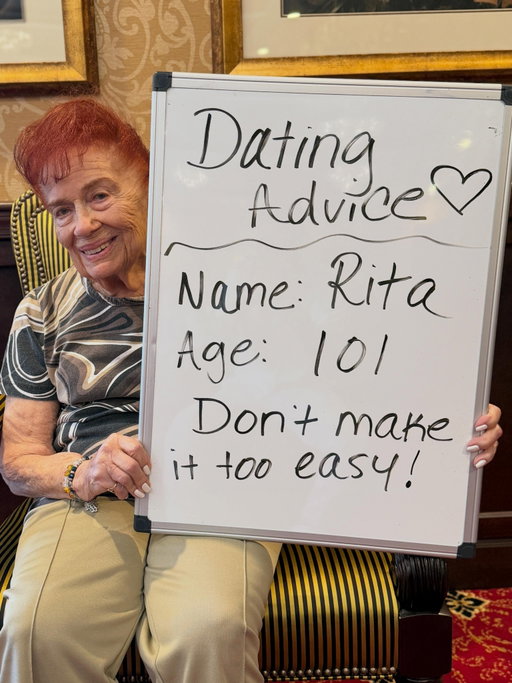 Dating
Advice ♡
Name: Rita
Age: 101
Don't make
it too easy!